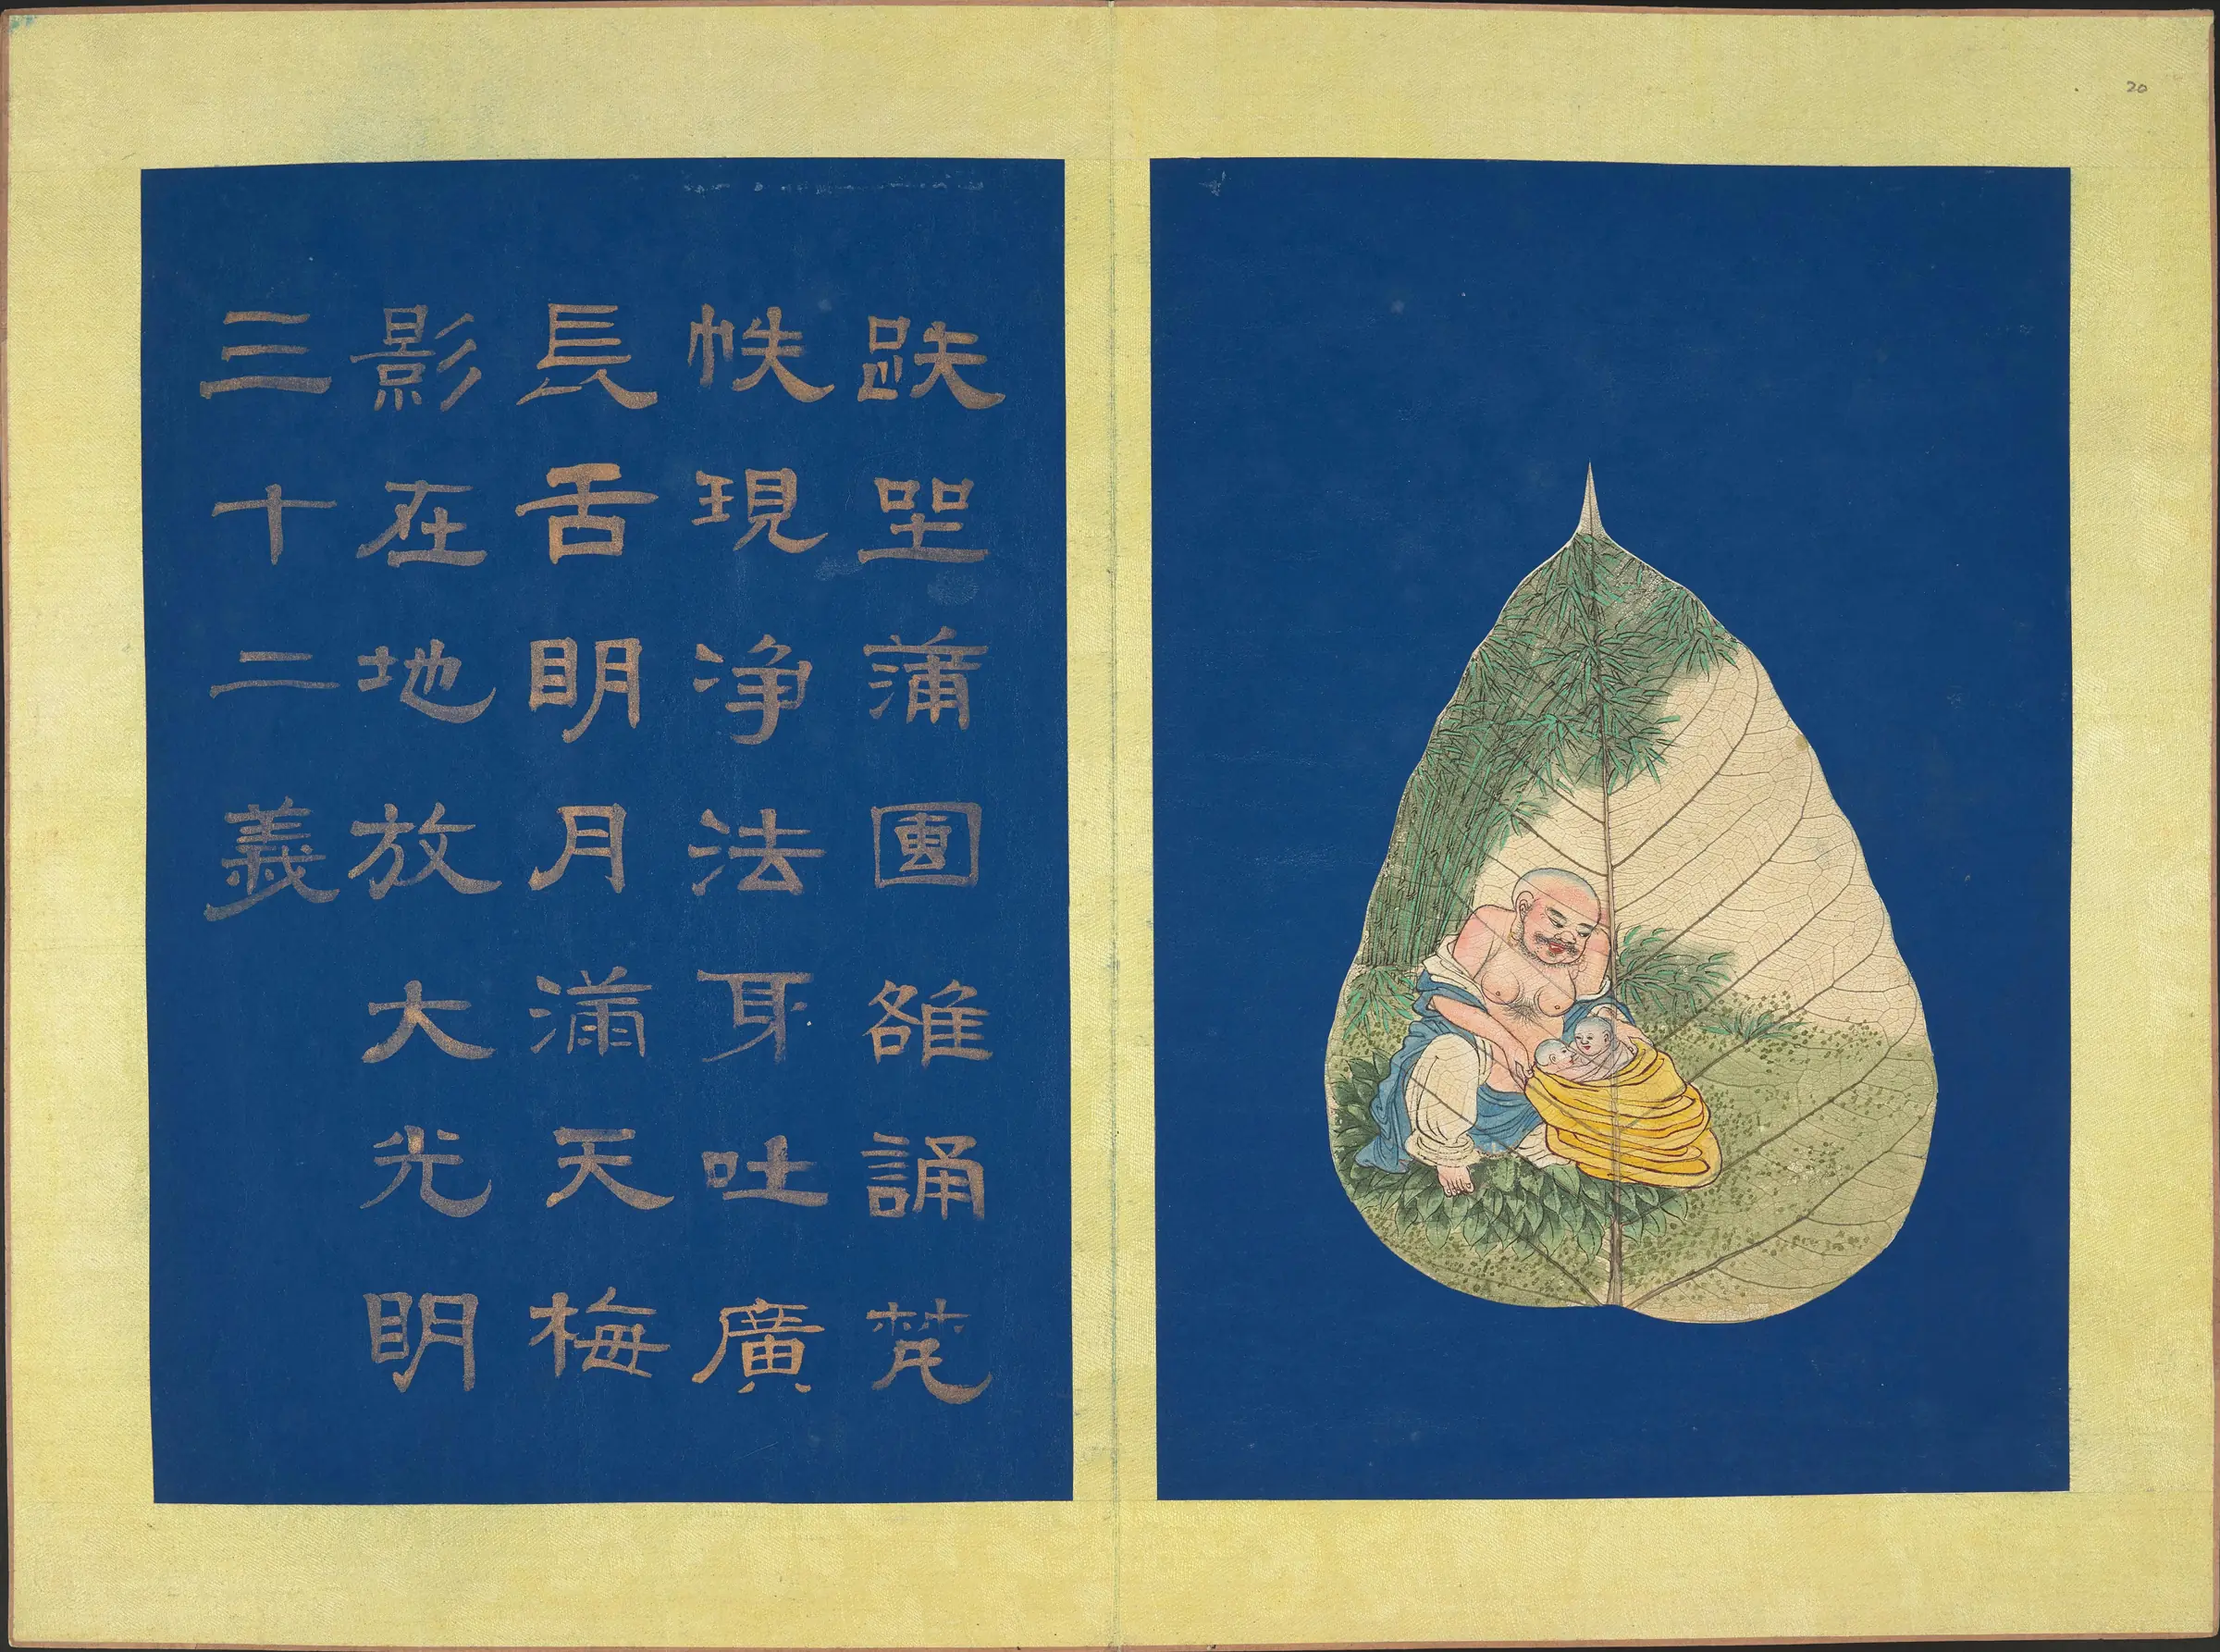 趺坐蒲團雒誦梵
帙現净法耳吐廣
長舌明月滿天梅
影在地放大光明
三十二義
20